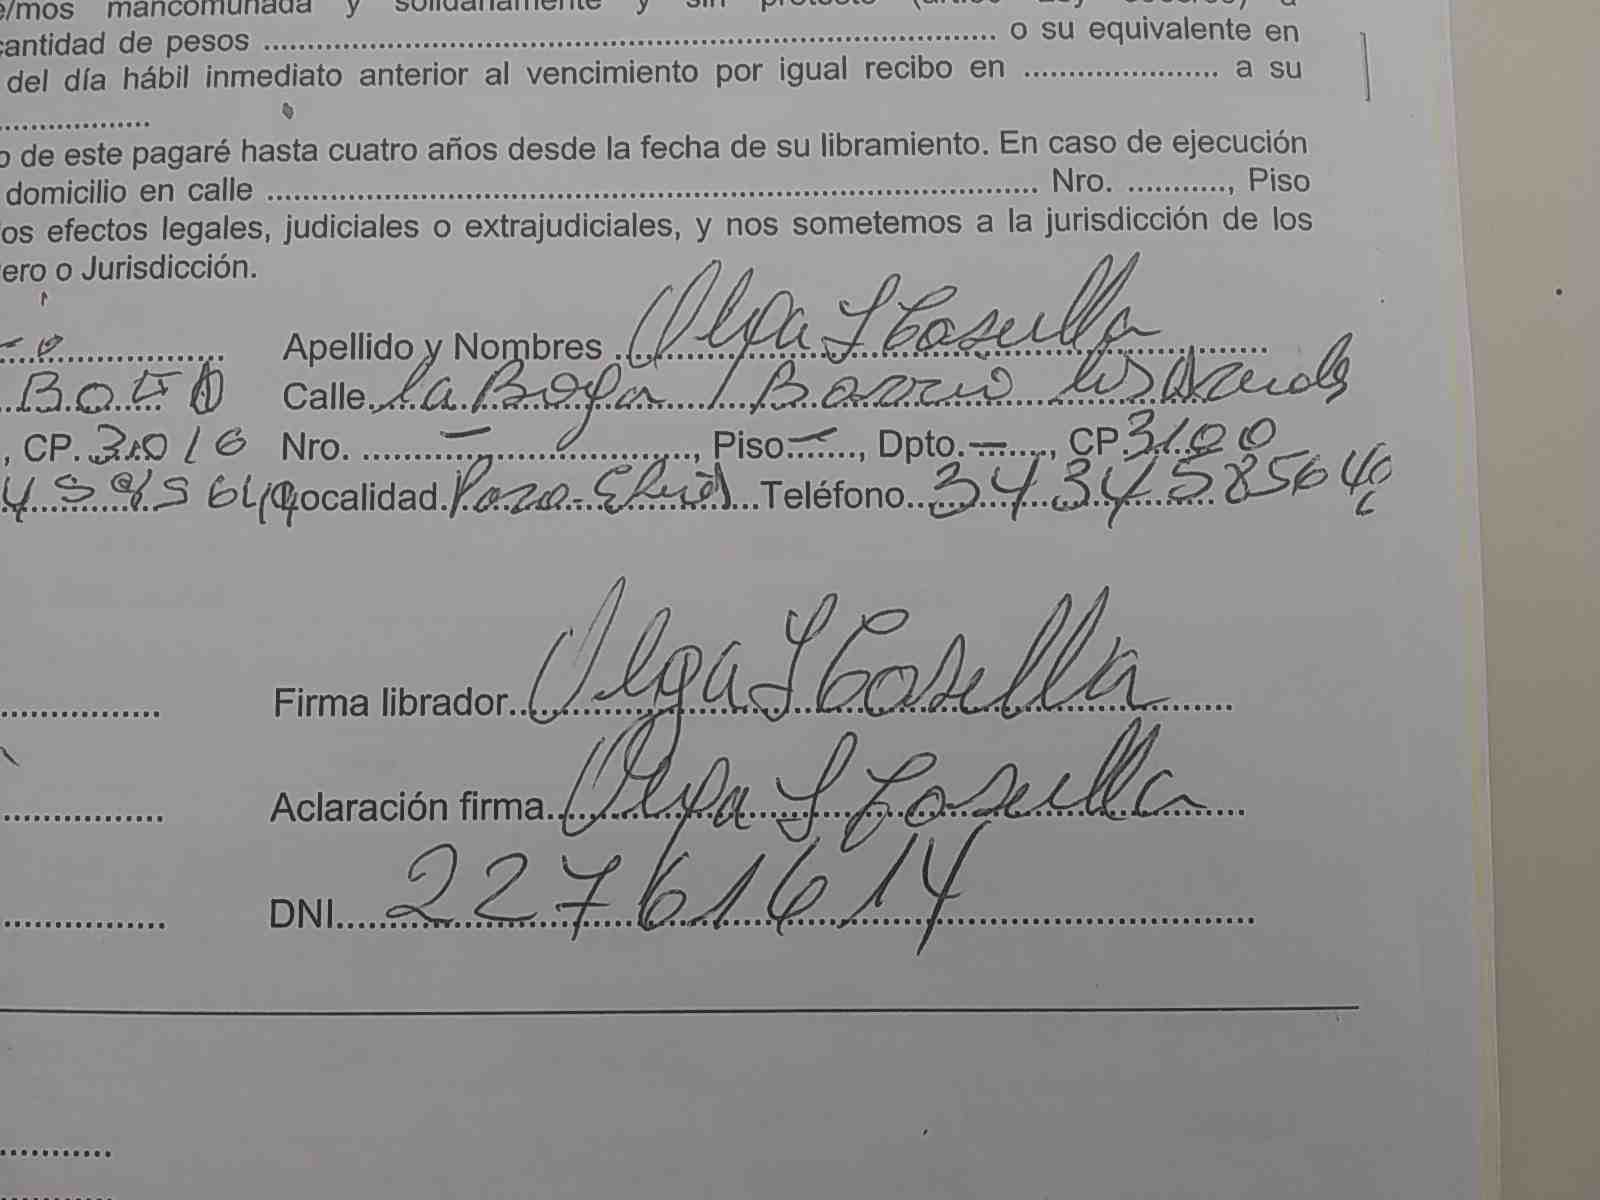 e/mos mancomunada y solidariamente y sin
cantidad de pesos ........................................ o su equivalente en
del día hábil inmediato anterior al vencimiento por igual recibo en ..................... a su
.................
o de este pagaré hasta cuatro años desde la fecha de su libramiento. En caso de ejecución
domicilio en calle ........................................ Nro. ..........., Piso
os efectos legales, judiciales o extrajudiciales, y nos sometemos a la jurisdicción de los
ero o Jurisdicción.
Apellido y Nombres Olga S Cosulla
Calle La Barrio Los
, CP. 3016 Nro. – , Piso – , Dpto. – , CP 3100
Localidad Teléfono 3434585640
Firma librador Olga S Cosella
Aclaración firma Olga S Cosulla
DNI 22761614